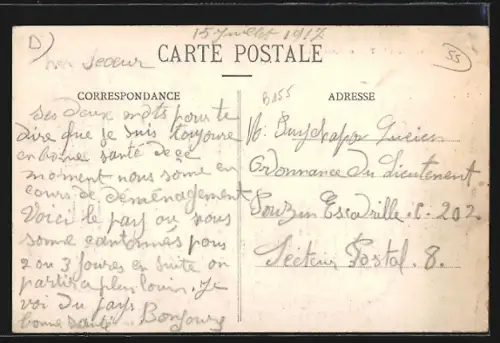 D
15 Juillet 1917
55
CARTE POSTALE
CORRESPONDANCE
B155
ADRESSE
Ses deux mots pour te
dire que je suis toujours
en bonne santé de ce
moment nous some en
cours de déménagement
Voici le pay ou nous
some cantonnés pous
2 ou 3 joures en suite on
partira plus louin. Je
voi du pays
bonne santé Bonjoure
Mr Lucien
Ordonnance du Lieutenent
Escadrille. C. 202
Secteur Postal. 8.